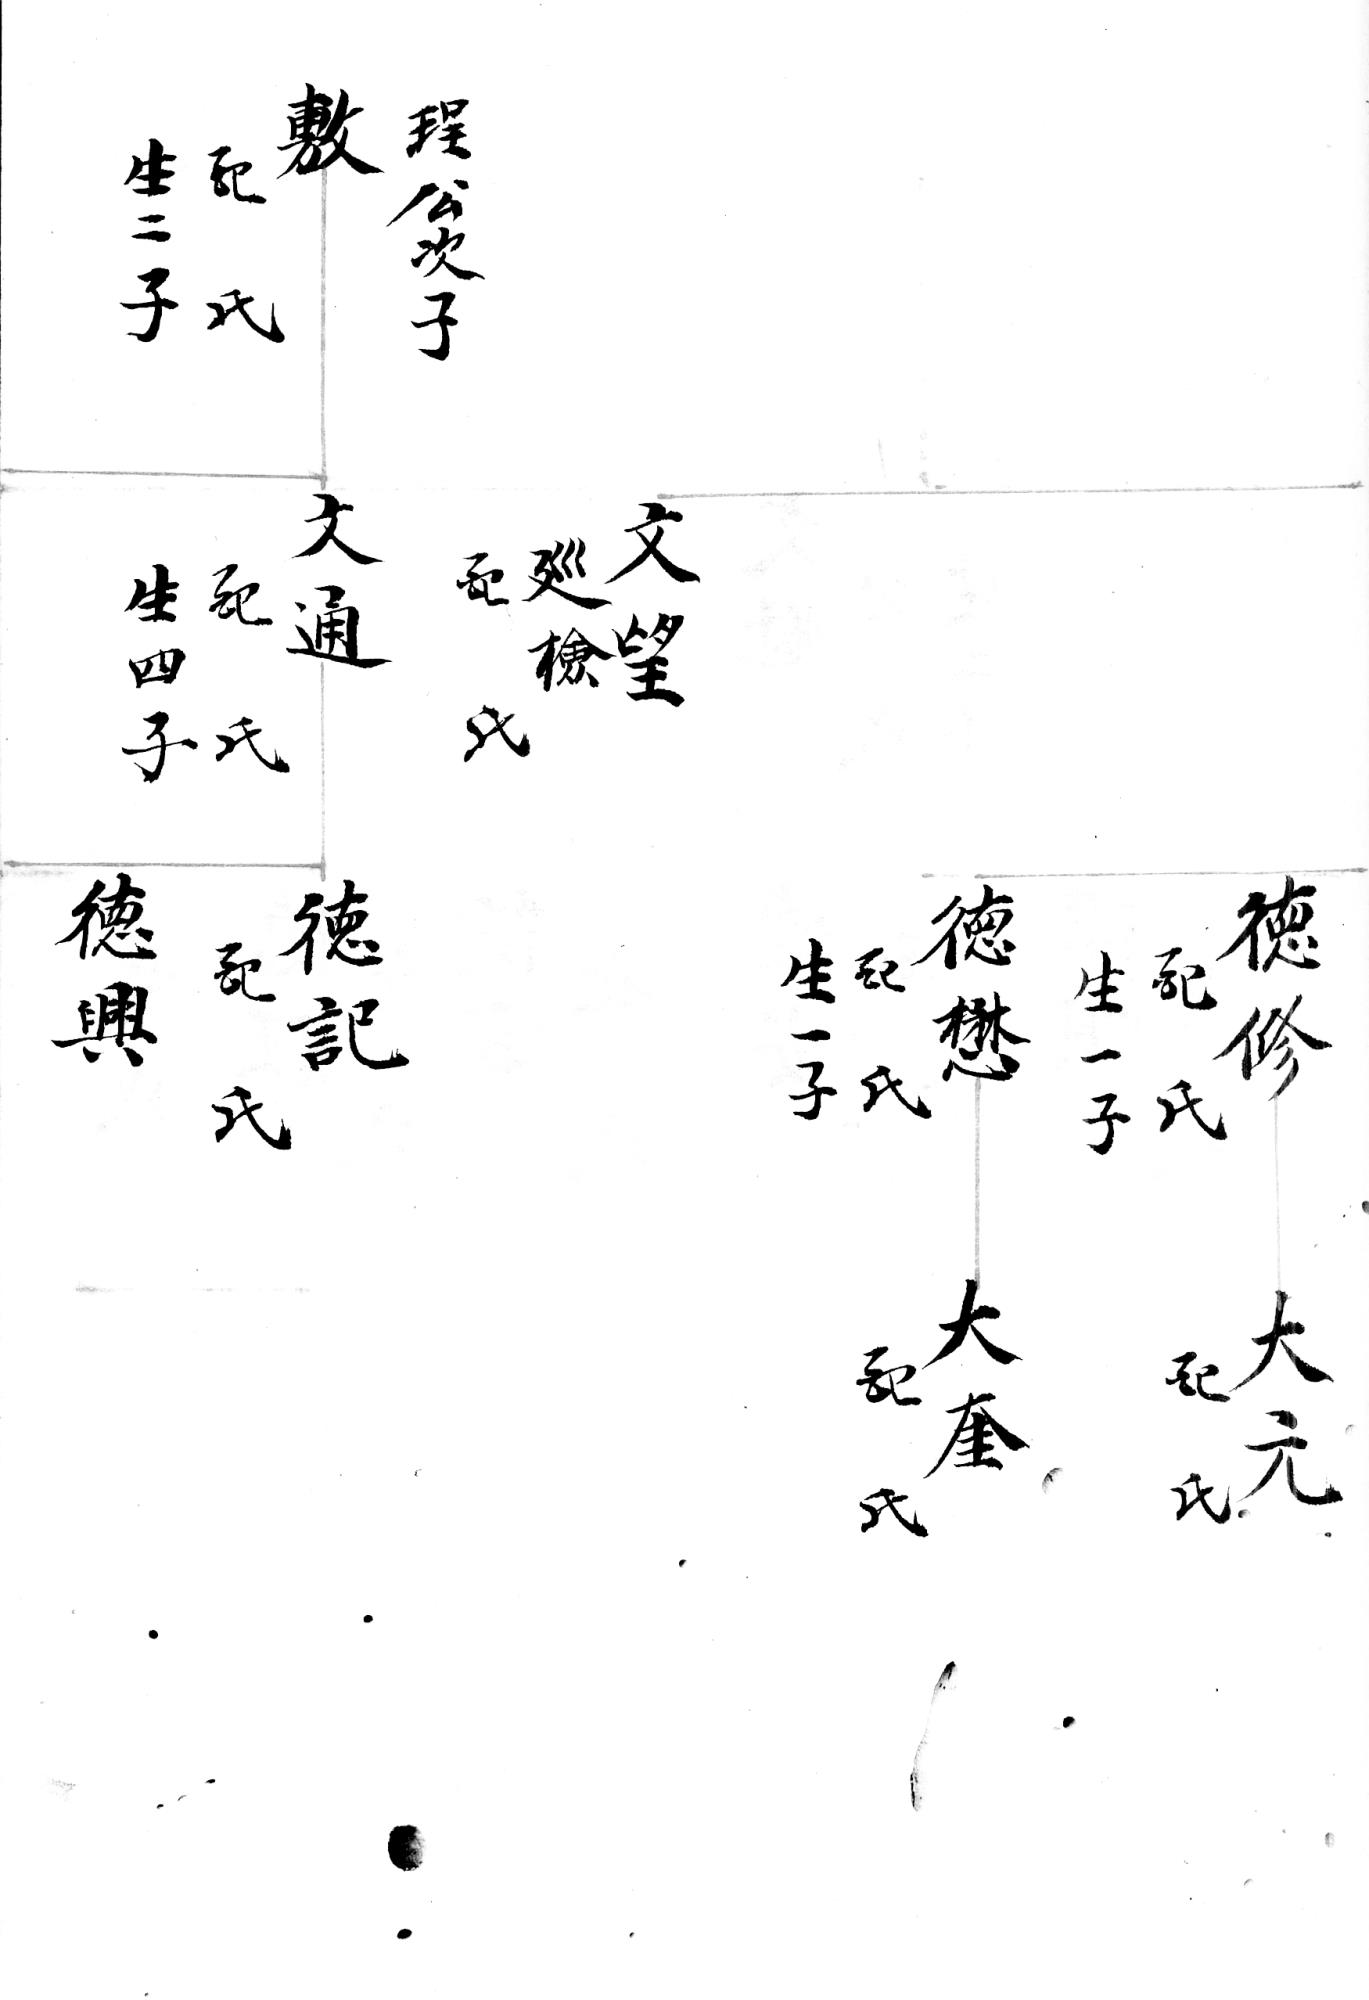 珵公次子
敷
配 氏
生二子
文望
廵檢
配 氏
文通
配 氏
生四子
徳修
配 氏
生一子
徳懋
配 氏
生一子
徳記
配 氏
徳興
大元
配 氏
大奎
配 氏